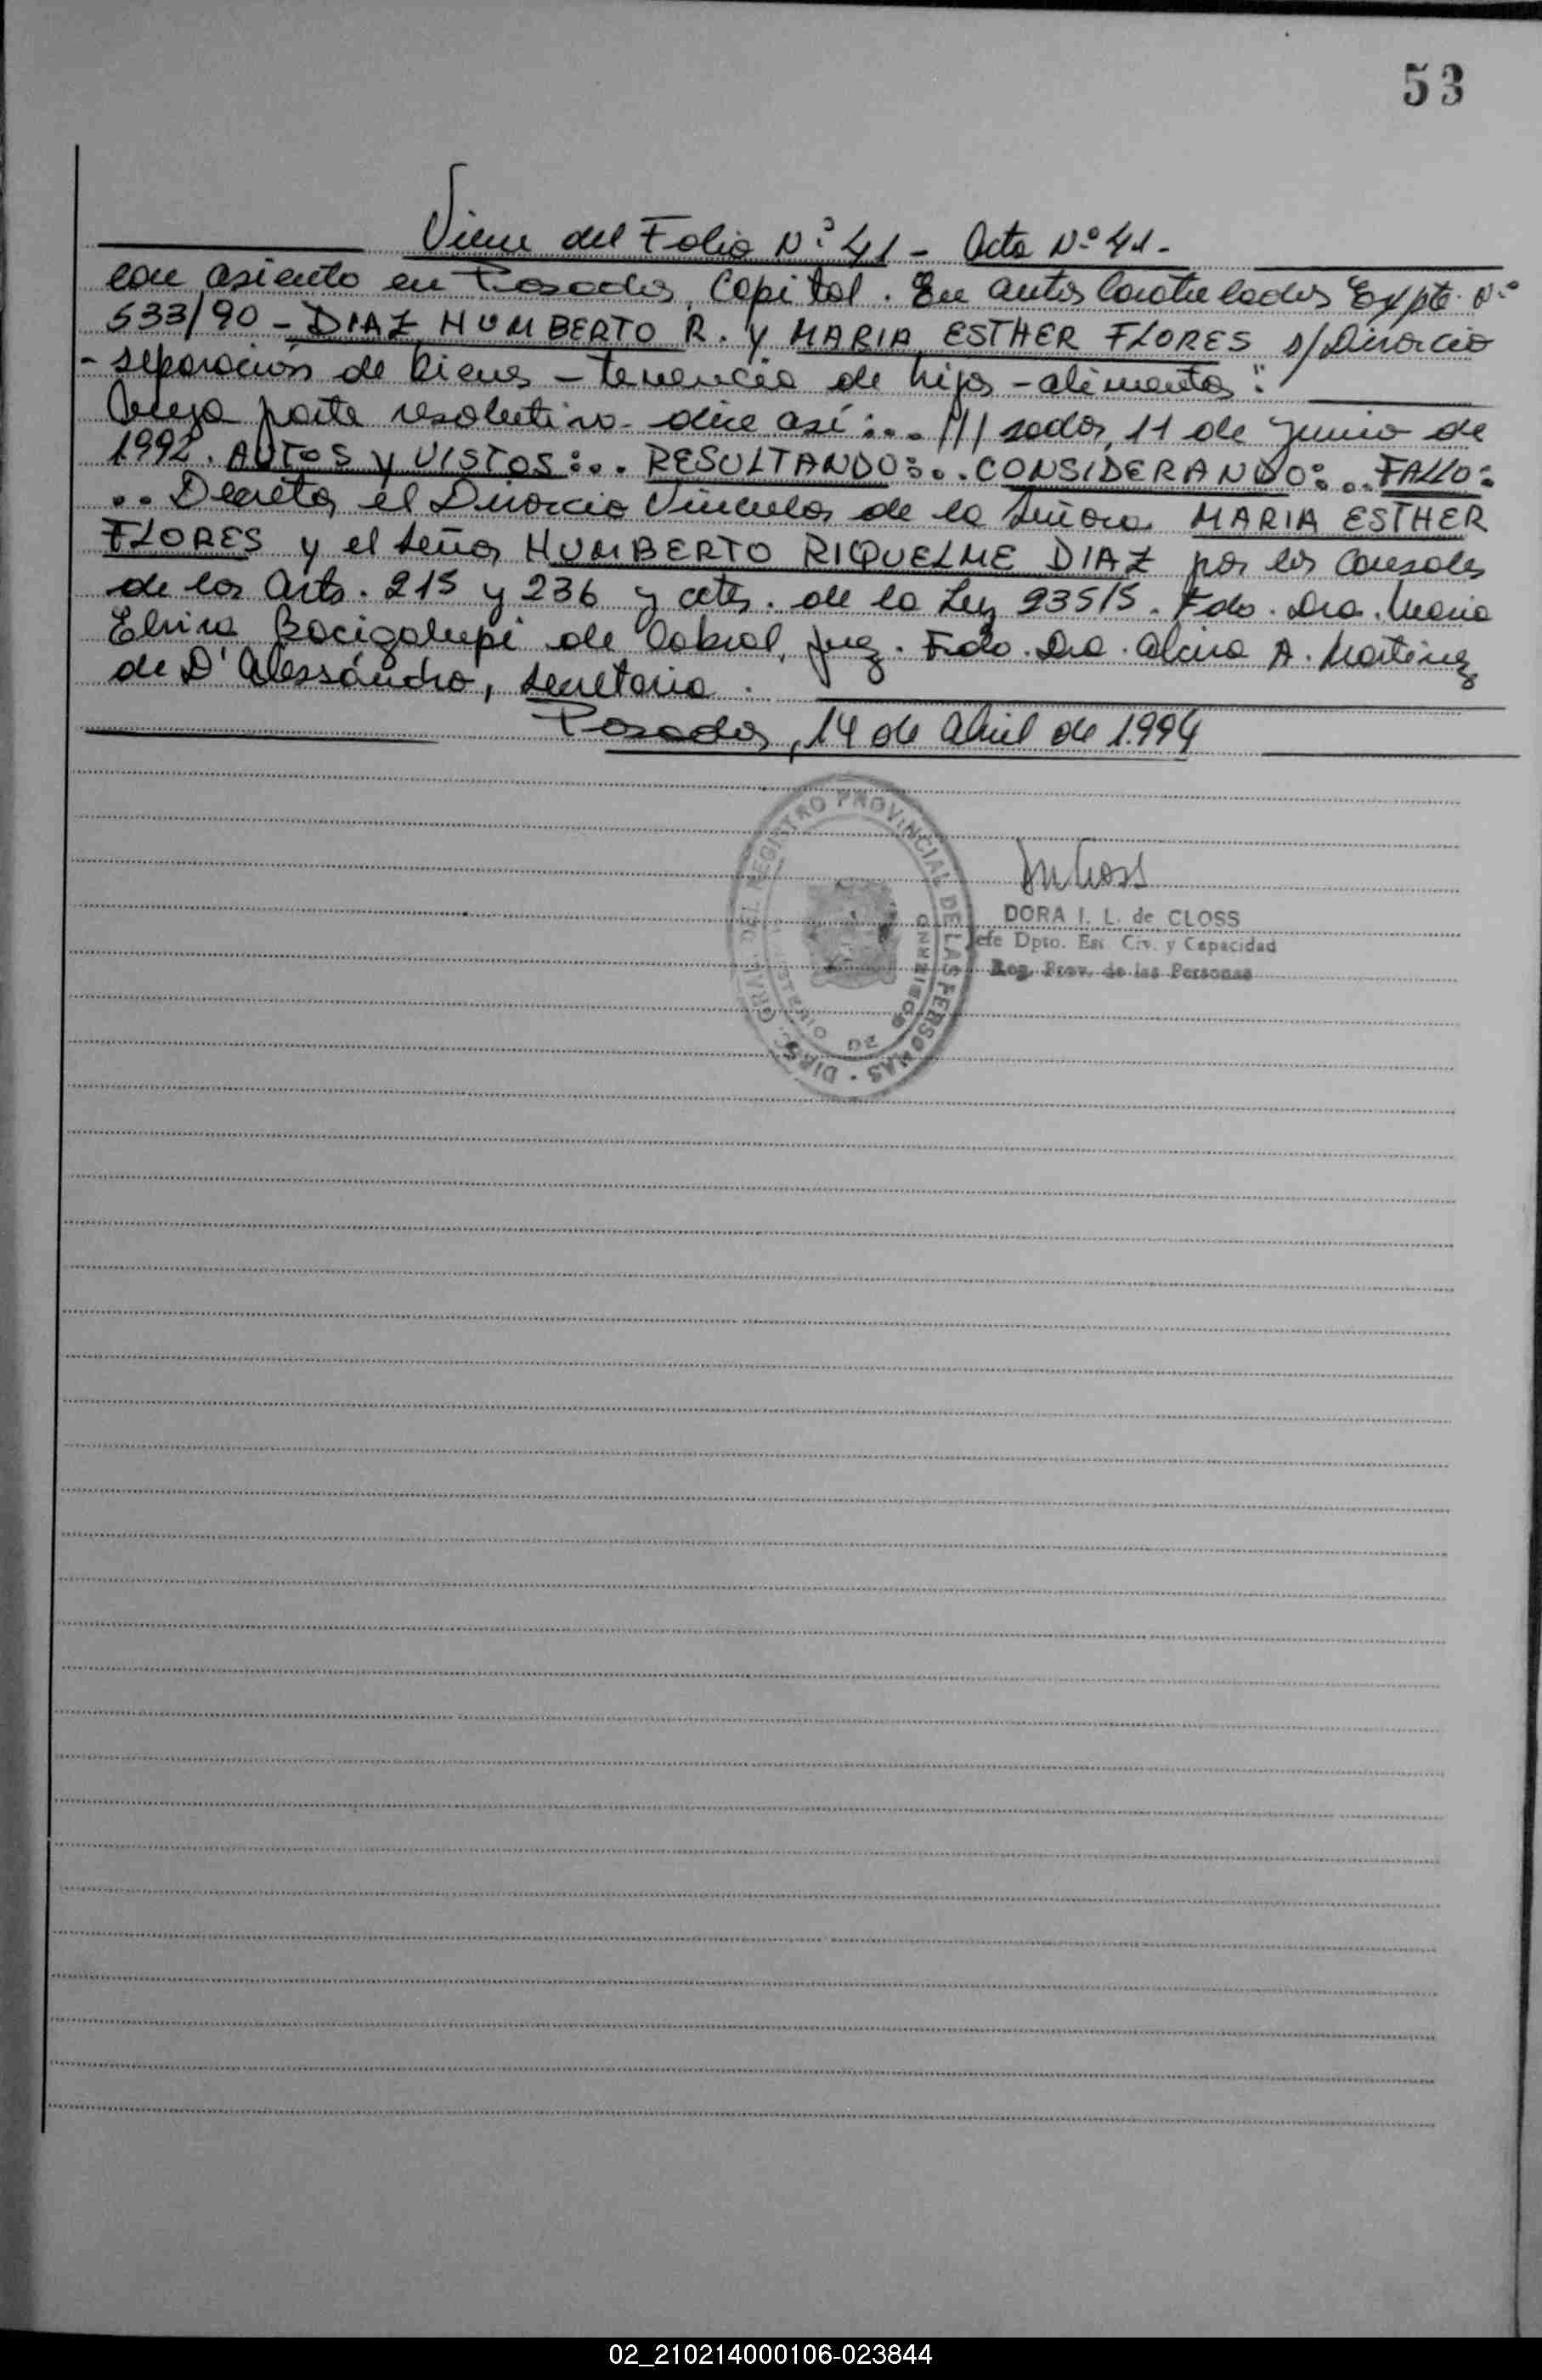 53
Viene del Folio Nº 41 - Acta Nº 41.
con asiento en Posadas, Capital. En autos Caratulados "Expte. Nº
533/90 - DIAZ HUMBERTO R. Y MARIA ESTHER FLORES s/Divorcio
- separación de bienes - tenencia de hijos - alimentos".
Cuya parte resolutiva dice así:... ///sadas, 11 de junio de
1992. AUTOS y VISTOS:.. RESULTANDO:.. CONSIDERANDO:.. FALLO:
.. Decretar el Divorcio Vincular de la Señora MARIA ESTHER
FLORES y el señor HUMBERTO RIQUELME DIAZ por las causales
de los Arts. 215 y 236 y cctes. de la Ley 23515. Fdo. Dra. Maria
Elvira Bacigalupi de Cabral, Juez. Fdo. Dra. Alcira A. Martinez
de D'Alessandro, Secretaria.
Posadas, 14 de Abril de 1.994
DIREC. GRAL. DEL REGISTRO PROVINCIAL DE LAS PERSONAS
MINISTERIO DE GOBIERNO
DORA I. L. de CLOSS
Jefe Dpto. Est. Civ. y Capacidad
Reg. Prov. de las Personas
02_210214000106-023844